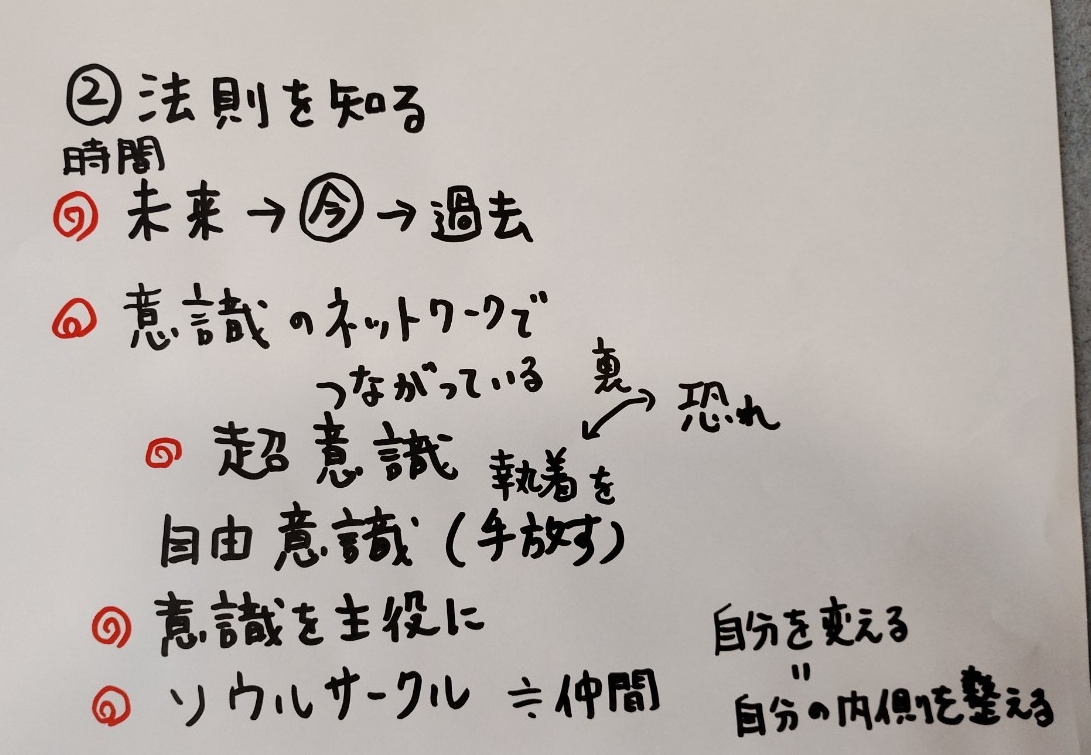 ② 法則を知る
時間
未来→㋑今→過去
意識のネットワークで
つながっている
裏
恐れ
超意識
執着を
自由意識(手放す)
意識を主役に
ソウルサークル ≒仲間
自分を変える
=
自分の内側を整える